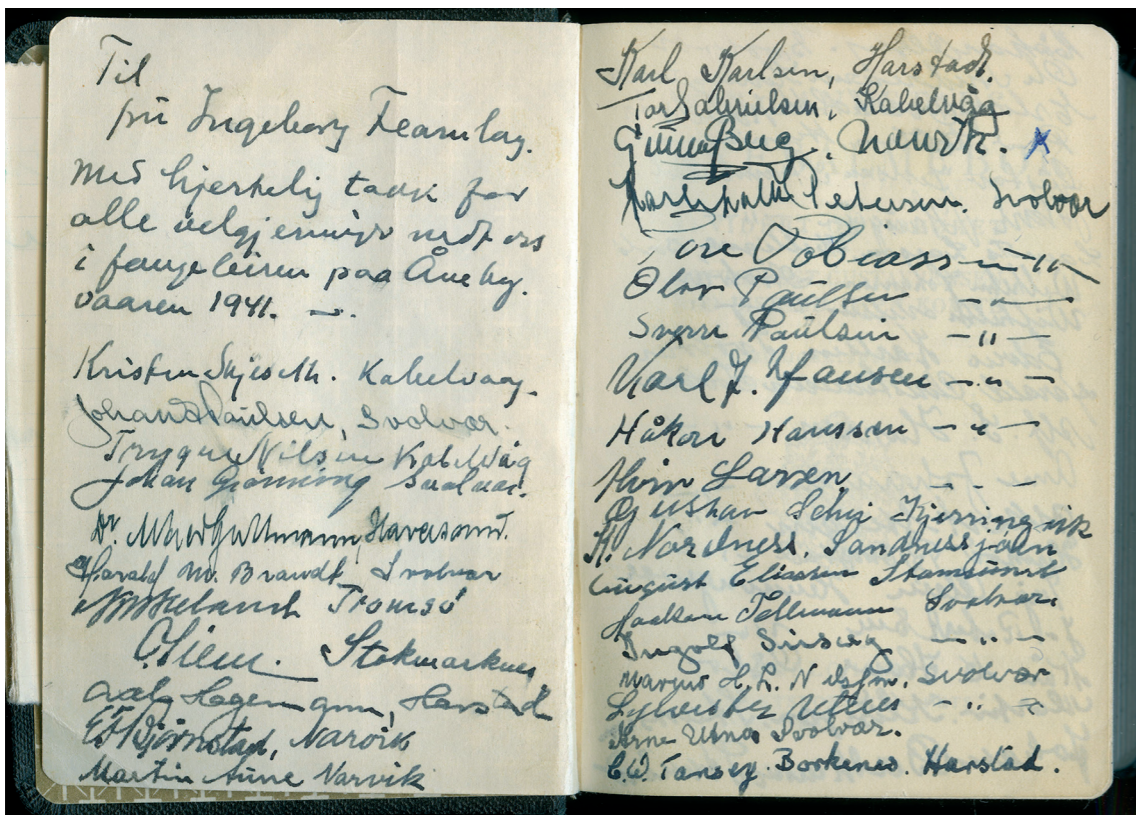 Til
fru Ingeborg Fearnley.
med hjertelig takk for
alle velgjerninger mot oss
i fangeleiren paa Åneby.
vaaren 1941.
Kristen Skjeseth. Kabelvaag.
Johan Paulsen, Svolvær.
Trygve Nilsen Kabelvåg
Johan Grönning Svolvær.
Dr. Guttmann, Havøysund.
Harald M. Brandt, Svolvær
Tromsö
Stokmarknes
Hagemann, Harstad
Björnstad, Narvik
Martin Aune Narvik
Karl Karlsen, Harstad.
Tor Gabrielsen, Kabelvåg
Gunnar Berg, Narvik. x
Petersen. Svolvær
Tore Tobiassen — „ —
Olav Paulsen — „ —
Sverre Paulsen — „ —
Karl J. Hansen — „ —
Håkon Hanssen — „ —
Larsen — „ —
Kjerringvik
K. Nordness. Sandnessjøen
August Eliassen Stamsund
Haakon Tellmann Svolvær.
Ingolf — „ —
Marius H. L. Nilsen. Svolvær
Sylvester Utnes — „ —
Arne Utnes Svolvær.
C.W. Tansey. Borkenes. Harstad.